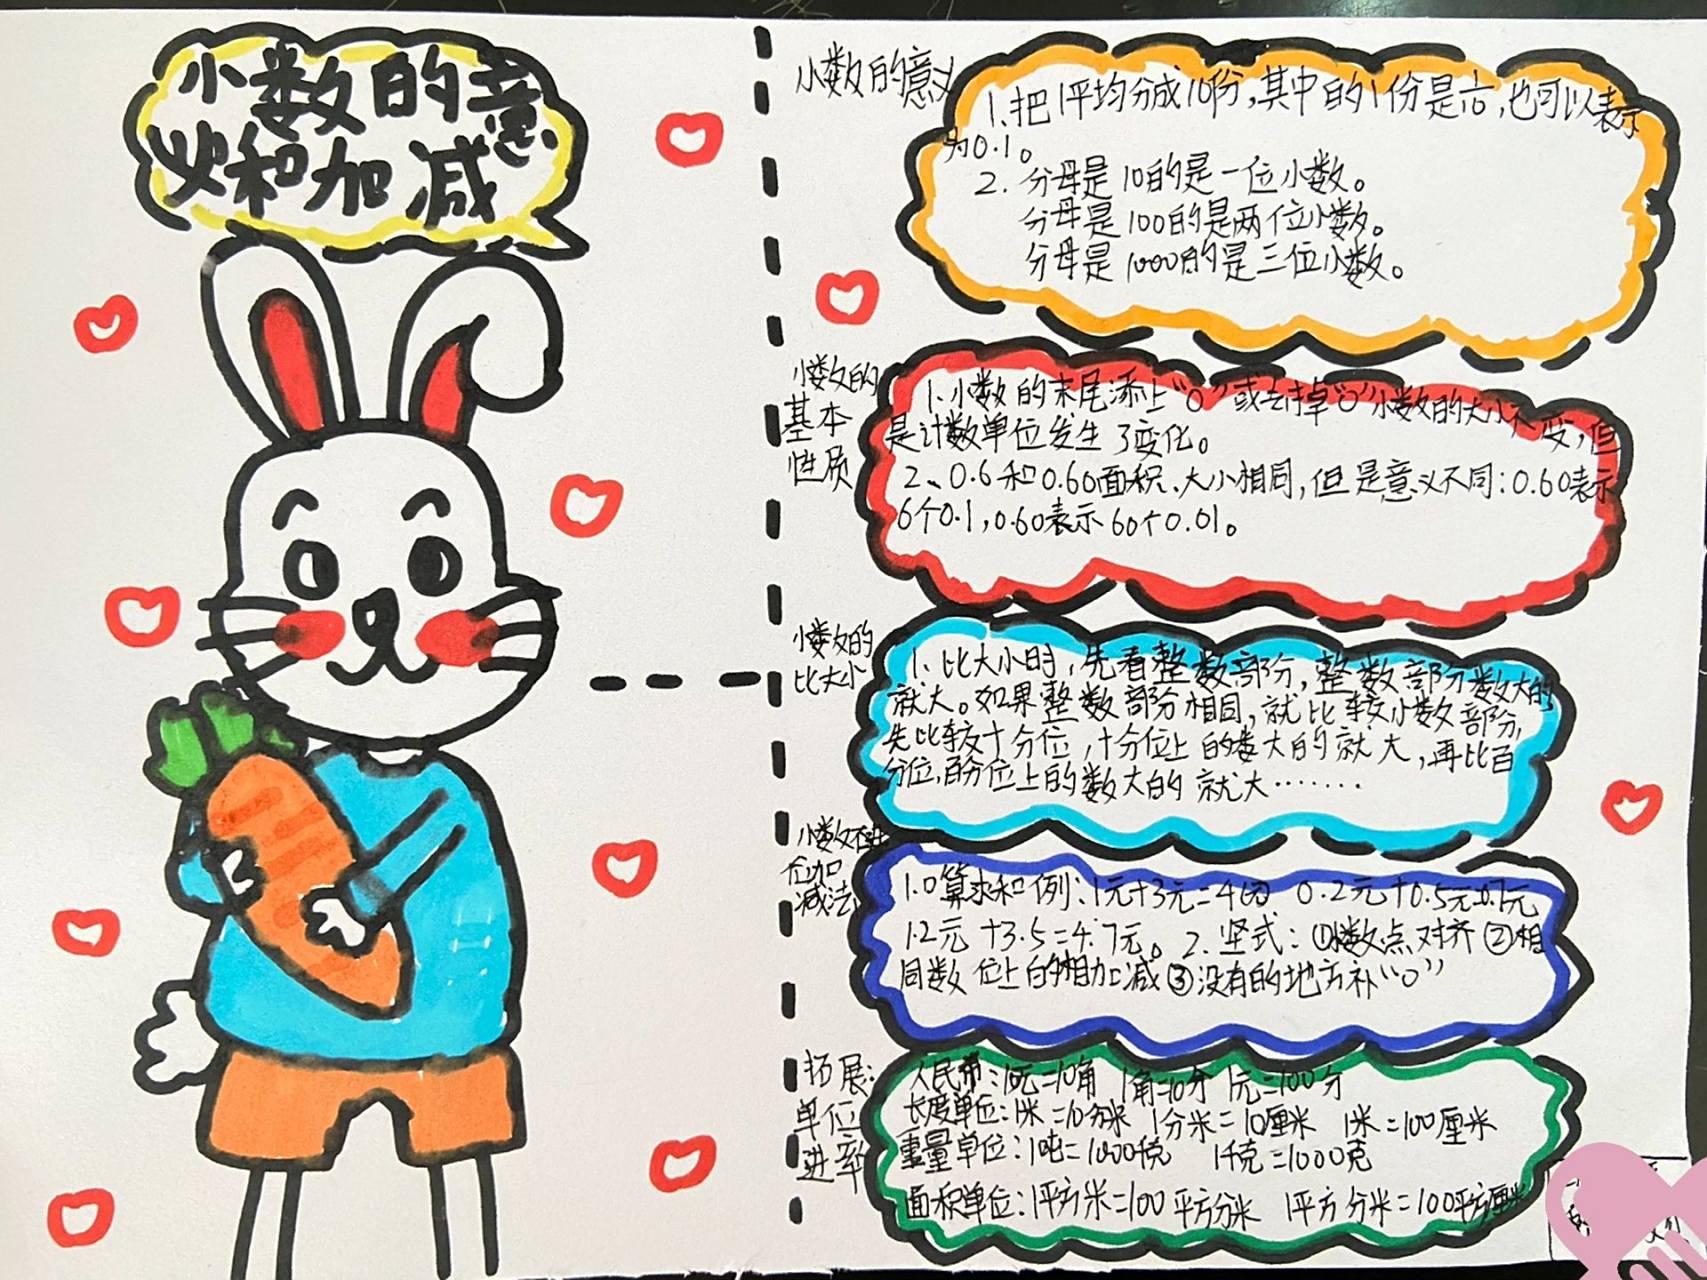 小数的意
义和加减
小数的意义
1.把1平均分成10份,其中的1份是1/10,也可以表示
为0.1。
2.分母是10的是一位小数。
分母是100的是两位小数。
分母是1000的是三位小数。
小数的
基本
性质
1.小数的末尾添上“0”或去掉“0”小数的大小不变,但
是计数单位发生了变化。
2、0.6和0.60面积、大小相同,但是意义不同:0.60表示
6个0.1,0.60表示60个0.01。
小数的
比大小
1.比大小时,先看整数部分,整数部分数大的
就大。如果整数部分相同,就比较小数部分,
先比较十分位,十分位上的数大的就大,再比百
分位,百分位上的数大的就大……
小数不进
位加
减法
1.算求和 例:1元+3元=4 0.2元+0.5元=0.7元
1.2元+3.5=4.7元。2.竖式:①小数点对齐②相
同数位上的相加减③没有的地方补“0”
拓展:
单位
进率
人民币:1元=10角 1角=10分 1元=100分
长度单位:1米=10分米 1分米=10厘米 1米=100厘米
重量单位:1吨=1000千克 1千克=1000克
面积单位:1平方米=100平方分米 1平方分米=100平方厘米